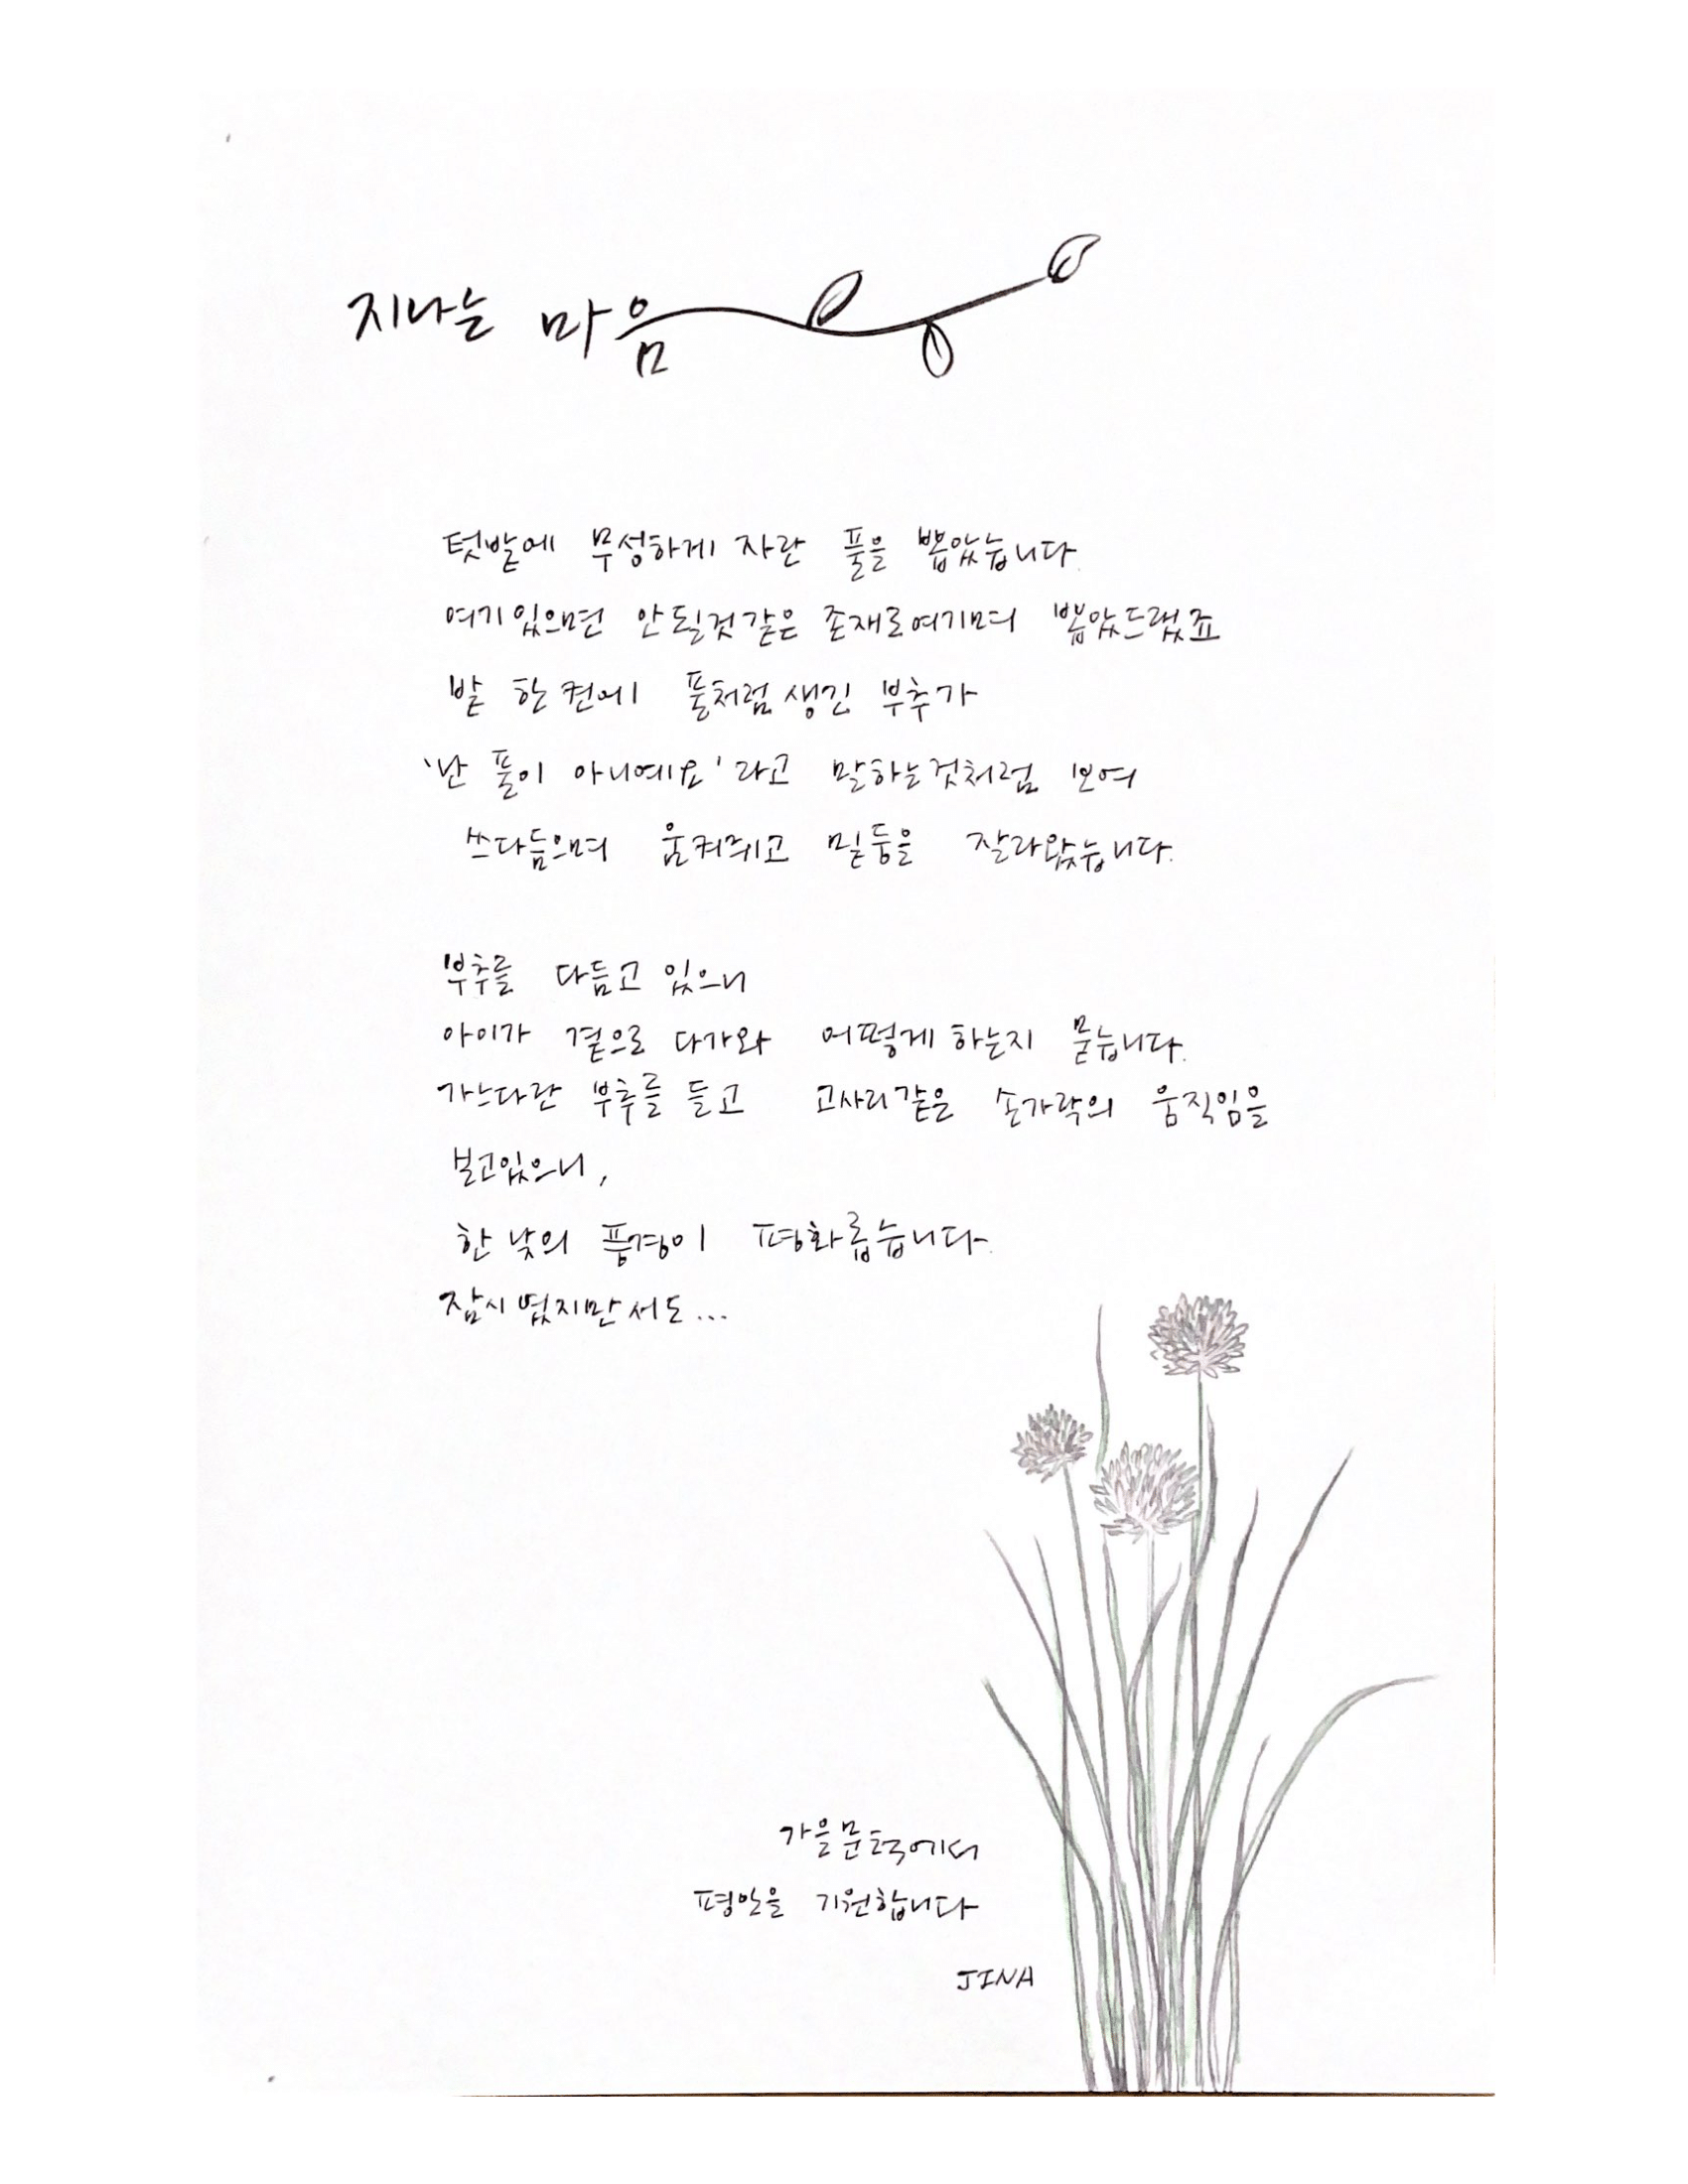 지나는 마음
텃밭에 무성하게 자란 풀을 뽑았습니다.
여기있으면 안될것같은 존재로여기며 뽑았드랬죠
밭 한켠에 풀처럼생긴 부추가
'난 풀이 아니예요'라고 말하는것처럼 보여
쓰다듬으며 움켜쥐고 밑둥을 잘라왔습니다.
부추를 다듬고 있으니
아이가 곁으로 다가와 어떻게 하는지 묻습니다.
가느다란 부추를 들고 고사리같은 손가락의 움직임을
보고있으니,
한 낮의 풍경이 평화롭습니다.
잠시였지만서도...
가을문턱에서
평안을 기원합니다
JINA